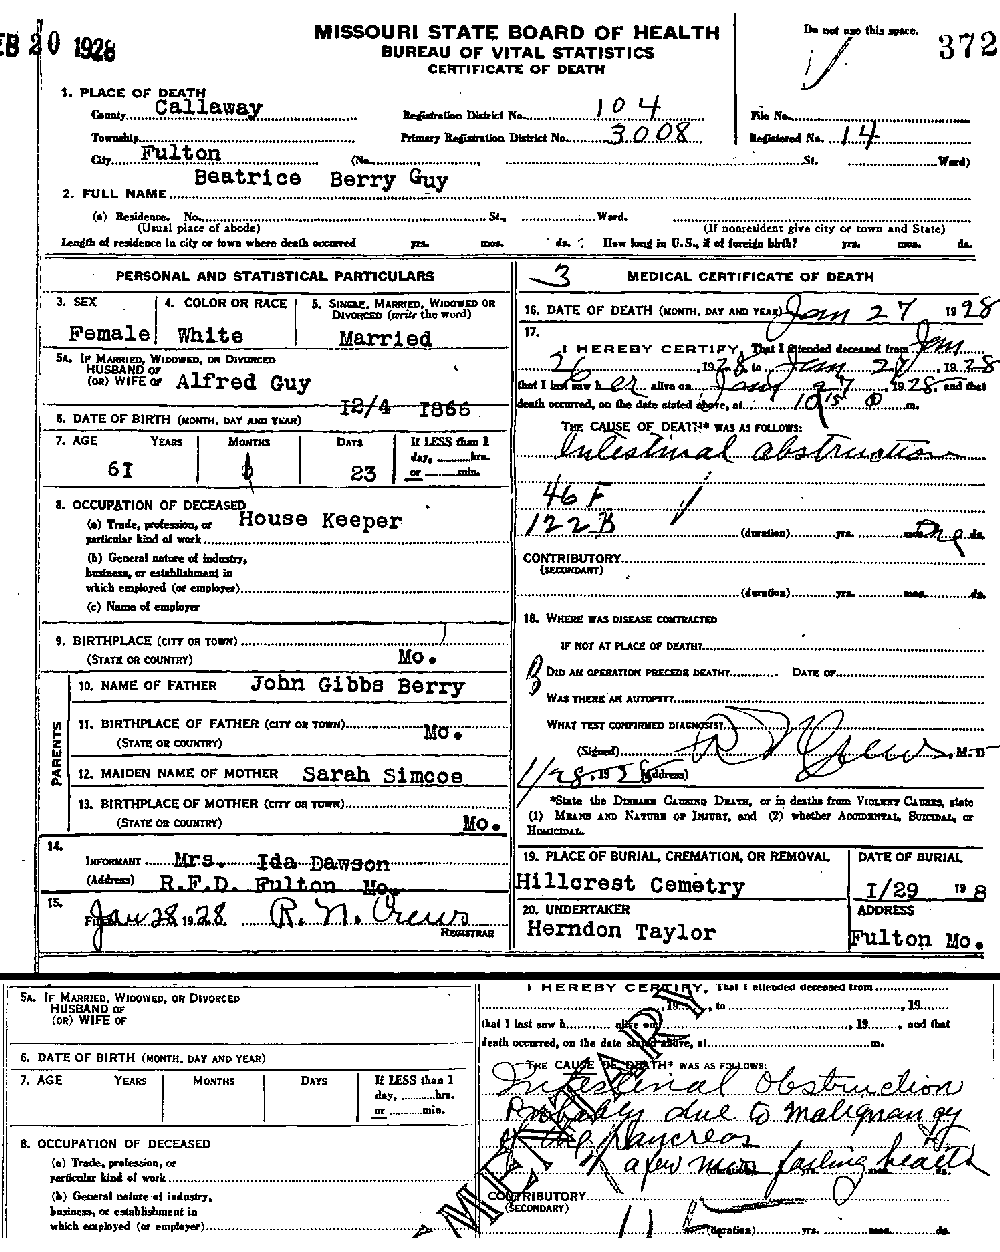 EB 20 1928
MISSOURI STATE BOARD OF HEALTH
BUREAU OF VITAL STATISTICS
CERTIFICATE OF DEATH
Do not use this space.
372
1. PLACE OF DEATH
County Callaway Registration District No. 104 File No.
Township Primary Registration District No. 3008 Registered No. 14
City Fulton (No. St. Ward)
2. FULL NAME Beatrice Berry Guy
(a) Residence. No. St., Ward.
(Usual place of abode) (If nonresident give city or town and State)
Length of residence in city or town where death occurred yrs. mos. ds. How long in U.S., if of foreign birth? yrs. mos. ds.
PERSONAL AND STATISTICAL PARTICULARS
3. SEX 4. COLOR OR RACE 5. SINGLE, MARRIED, WIDOWED OR DIVORCED (write the word)
Female White Married
5A. IF MARRIED, WIDOWED, OR DIVORCED
HUSBAND OF
(OR) WIFE OF Alfred Guy
6. DATE OF BIRTH (MONTH, DAY AND YEAR) 12/4 1866
7. AGE YEARS MONTHS DAYS If LESS than 1 day, hrs. or min.
61 23
8. OCCUPATION OF DECEASED
(a) Trade, profession, or particular kind of work House Keeper
(b) General nature of industry,
business, or establishment in
which employed (or employer)
(c) Name of employer
9. BIRTHPLACE (CITY OR TOWN)
(STATE OR COUNTRY) Mo.
PARENTS
10. NAME OF FATHER John Gibbs Berry
11. BIRTHPLACE OF FATHER (CITY OR TOWN)
(STATE OR COUNTRY) Mo.
12. MAIDEN NAME OF MOTHER Sarah Simcoe
13. BIRTHPLACE OF MOTHER (CITY OR TOWN)
(STATE OR COUNTRY) Mo.
14.
INFORMANT Mrs. Ida Dawson
(Address) R.F.D. Fulton Mo.
15.
Filed Jan 28 1928 R. N. Crews
REGISTRAR
3 MEDICAL CERTIFICATE OF DEATH
16. DATE OF DEATH (MONTH, DAY AND YEAR) Jan 27 1928
17.
I HEREBY CERTIFY, That I attended deceased from Jan
26, 1928, to Jan 27, 1928
that I last saw her alive on Jany 27, 1928, and that
death occurred, on the date stated above, at 10 15 m.
THE CAUSE OF DEATH* WAS AS FOLLOWS:
Intestinal obstruction
46 F
122 B
(duration) yrs. mos. ds.
CONTRIBUTORY
(SECONDARY)
(duration) yrs. mos. ds.
18. WHERE WAS DISEASE CONTRACTED
IF NOT AT PLACE OF DEATH?
DID AN OPERATION PRECEDE DEATH? DATE OF
WAS THERE AN AUTOPSY?
WHAT TEST CONFIRMED DIAGNOSIS?
(Signed) R N Crews M. D
1/28, 1928 (Address)
*State the DISEASE CAUSING DEATH, or in deaths from VIOLENT CAUSES, state
(1) MEANS AND NATURE OF INJURY, and (2) whether ACCIDENTAL, SUICIDAL, or
HOMICIDAL.
19. PLACE OF BURIAL, CREMATION, OR REMOVAL DATE OF BURIAL
Hillcrest Cemetry 1/29 19 8
20. UNDERTAKER ADDRESS
Herndon Taylor Fulton Mo.
5A. IF MARRIED, WIDOWED, OR DIVORCED
HUSBAND OF
(OR) WIFE OF
6. DATE OF BIRTH (MONTH, DAY AND YEAR)
7. AGE YEARS MONTHS DAYS If LESS than 1 day, hrs. or min.
8. OCCUPATION OF DECEASED
(a) Trade, profession, or
particular kind of work
(b) General nature of industry,
business, or establishment in
which employed (or employer)
I HEREBY CERTIFY, That I attended deceased from
, 19 , to , 19
that I last saw h alive on , 19 , and that
death occurred, on the date stated above, at m.
THE CAUSE OF DEATH* WAS AS FOLLOWS:
Intestinal Obstruction
Probably due to malignancy
of the Pancreas
a few mos failing health
CONTRIBUTORY
(SECONDARY)
(duration) yrs. mos. ds.
MENTARY